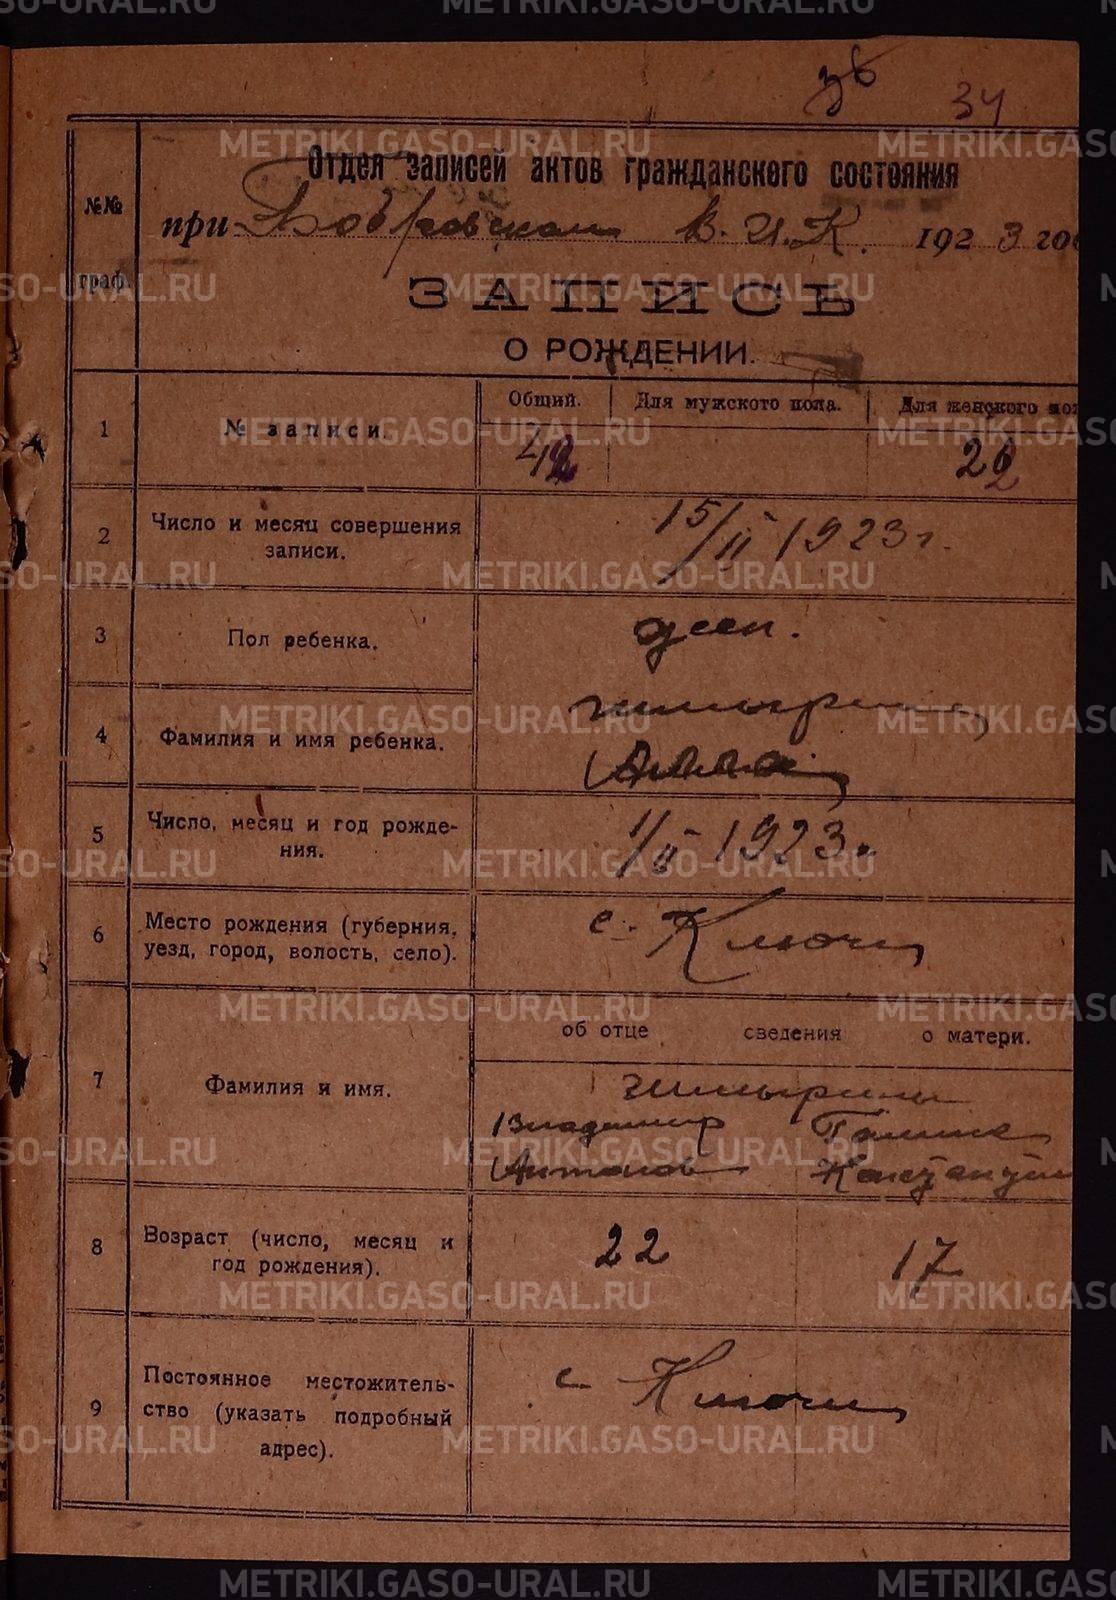 METRIKI.GASO-URAL.RU
34
Отдел записей актов гражданского состояния
при Бобровском В.И.К. 1923 год
№№ граф.
ЗАПИСЬ
О РОЖДЕНИИ.
1 № записи. Общий. Для мужского пола. Для женского пол
42 22
2 Число и месяц совершения записи. 15/II 1923 г.
3 Пол ребенка. жен.
4 Фамилия и имя ребенка. Чимырина
Анна
5 Число, месяц и год рождения. 1/II 1923 г.
6 Место рождения (губерния, уезд, город, волость, село). с. Ключи
об отце сведения о матери.
7 Фамилия и имя. Чимырины
Владимир Галина
Антонов Константин
8 Возраст (число, месяц и год рождения). 22 17
9 Постоянное местожительство (указать подробный адрес). с Ключи